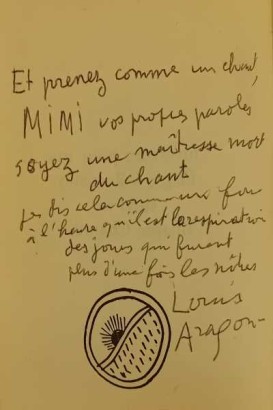 Et prenez comme un chant,
MIMI vos propres paroles
soyez une maîtresse mort
du chant
dis cela comme un
à l'heure qu'il est la respiration
des jours qui furent
plus d'une fois les nôtres
Louis
Aragon